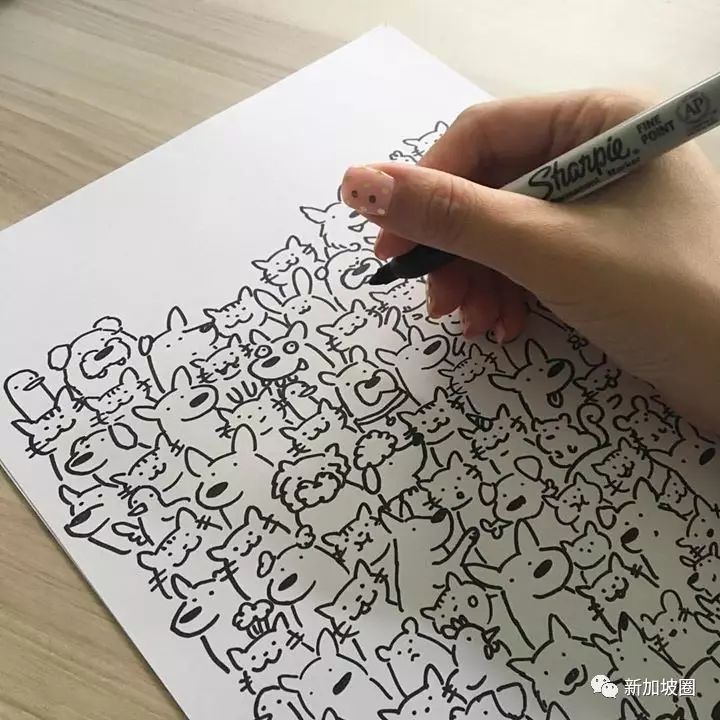 Sharpie
FINE
POINT
AP
Permanent Marker
新加坡圈